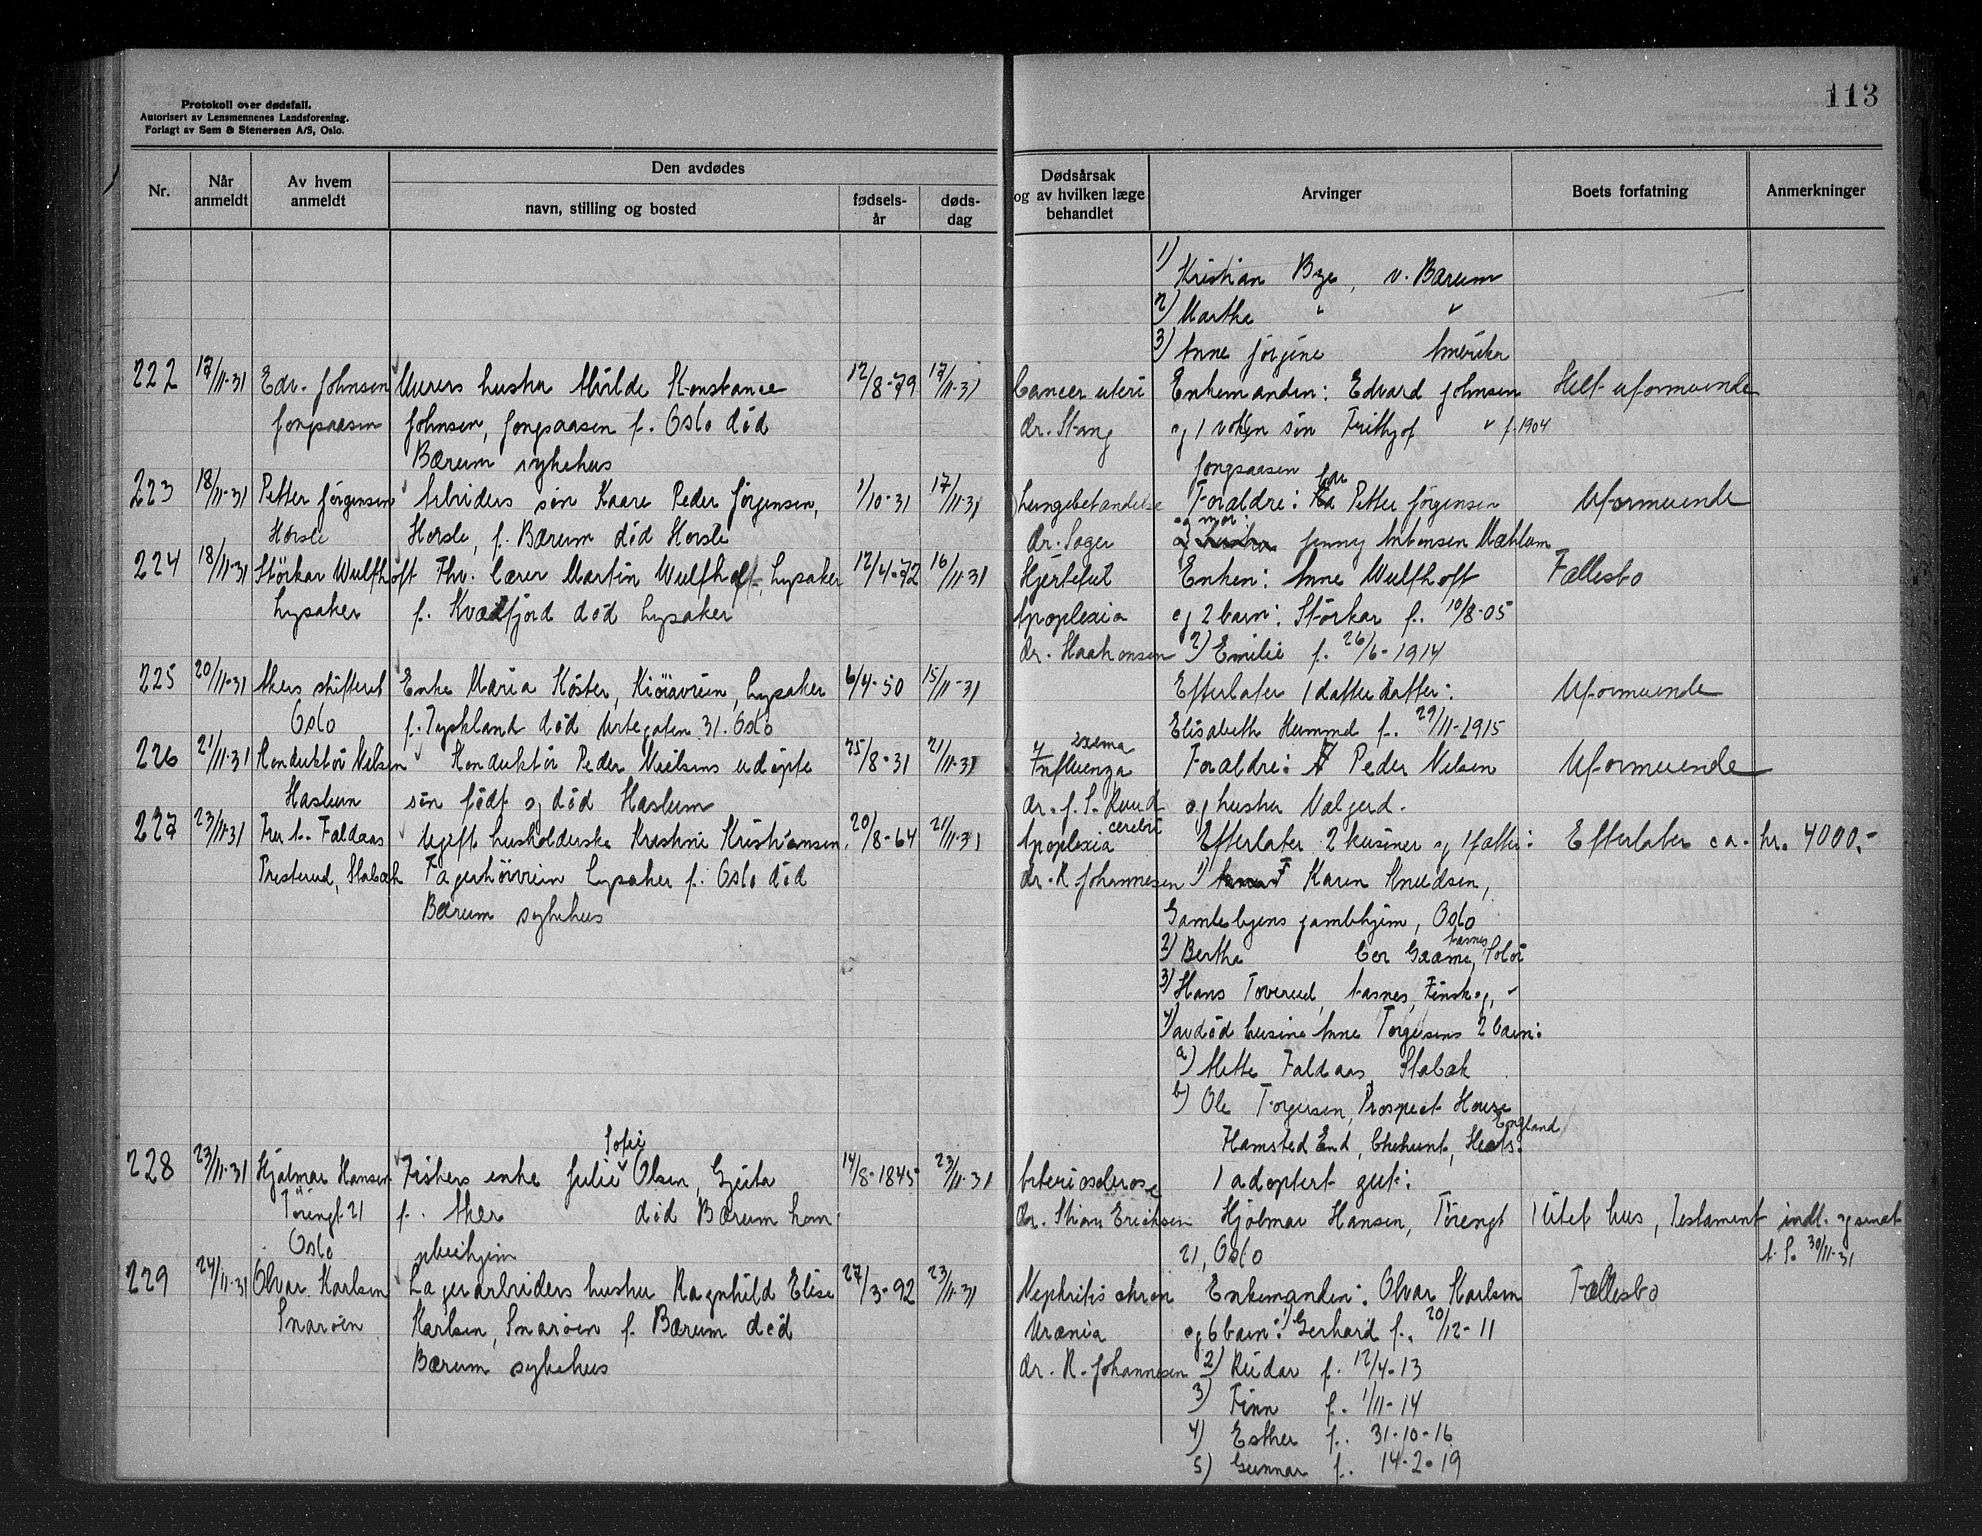 113
Protokoll over dødsfall.
Autorisert av Lensmennenes Landsforening.
Forlagt av Sem & Stenersen A/S, Oslo.
Nr.
Når anmeldt
Av hvem anmeldt
Den avdødes
navn, stilling og bosted
fødsels-år
døds-dag
Dødsårsak og av hvilken læge behandlet
Arvinger
Boets forfatning
Anmerkninger
1) Kristian Bye, v. Bærum
2) Marthe " "
3) Anne Jørgine Amerika
222 17/11-31 Edv. Johnsen Murers hustru Alvilde Konstanse 12/8-79 17/11-31 Cancer uteri Enkemanden: Edvard Johnsen Helt uformuende
Jongsaasen Johnsen, Jongsaasen f. Oslo död dr. Stang og 1 voksen sön Frithjof " f. 1904
Bærum sykehus Jongsaasen
223 18/11-31 Petter Jørgensen Arbeiders søn Kaare Peder Jørgensen, 1/10-31 17/11-31 Lungebetændelse Forældre: Petter Jørgensen Uformuende
Horsle Horsle, f. Bærum död Horsle dr. Sager og mor: Jenny Antonsen Mæhlum
224 18/11-31 Störkar Wulfhoft Fhv. lærer Martin Wulfhoft, Lysaker 12/4-72 16/11-31 Hjertefeil Enken: Anne Wulfhoft Fællesbo
Lysaker f. Kvædfjord död Lysaker Apoplexia og 2 barn: Störkar f. 10/8-05
dr. Haakonsen 2) Emilie f. 26/6-1914
225 20/11-31 Akers skifteret Enke Maria Köster, Lysaker 6/4-50 15/11-31 Efterlater 1 datterdatter: Uformuende
Oslo f. Tyskland död Urtegaten 31. Oslo Elisabeth f. 29/11-1915
226 21/11-31 Konduktör Nielsen Konduktör Peder Nielsens udöpte 25/8-31 21/11-31 exema Influenza Forældre: Peder Nielsen Uformuende
Haslum sön födt og död Haslum dr. J. S. Ruud og hustru Valgerd.
227 23/11-31 Fru A. Faldaas Ugift husholderske Kristine Kristiansen, 20/8-64 21/11-31 Apoplexia cerebri Efterlater 2 kusiner og 1 fætter: Efterlater ca. kr. 4000,-
Presterud, Stabæk Fagerhöiveien Lysaker f. Oslo död dr. R. Johannesen 1) Karen Knudsen,
Bærum sykehus Gamlebyens gamlehjem, Oslo
2) Bertha Solör
3) Hans Toverud, Aasnes, Finskog, "
4) avdöd kusine Anne Torgersens 2 barn:
a) Mette Faldaas, Stabæk
b) Ole Torgersen, Prospect House
Hamsted End, Cheshunt, Herts. England
228 23/11-31 Hjalmar Hansen Fiskers enke Julie Sofie Olsen, Geita 14/8-1845 23/11-31 Arteriosclerose 1 adoptert gut:
Törengt 21 f. Aker död Bærum kom. dr. Stian Erichsen Hjalmar Hansen, Törengt 1 litet hus, Testament indl. og sendt
Oslo pleiehjem 21, Oslo A. S. 30/11-31
229 24/11-31 Olvar Karlsen Lagerarbeiders hustru Ragnhild Elise 27/3-92 23/11-31 Nephritis chron Enkemanden: Olvar Karlsen Fællesbo
Snaröen Karlsen, Snaröen f. Bærum död Uræmia og 6 barn: 1) Gerhard f. 20/12-11
Bærum sykehus dr. R. Johannesen 2) Reidar f. 12/4-13
3) Finn f. 1/11-14
4) Esther f. 31-10-16
5) Gunnar f. 14-2-19